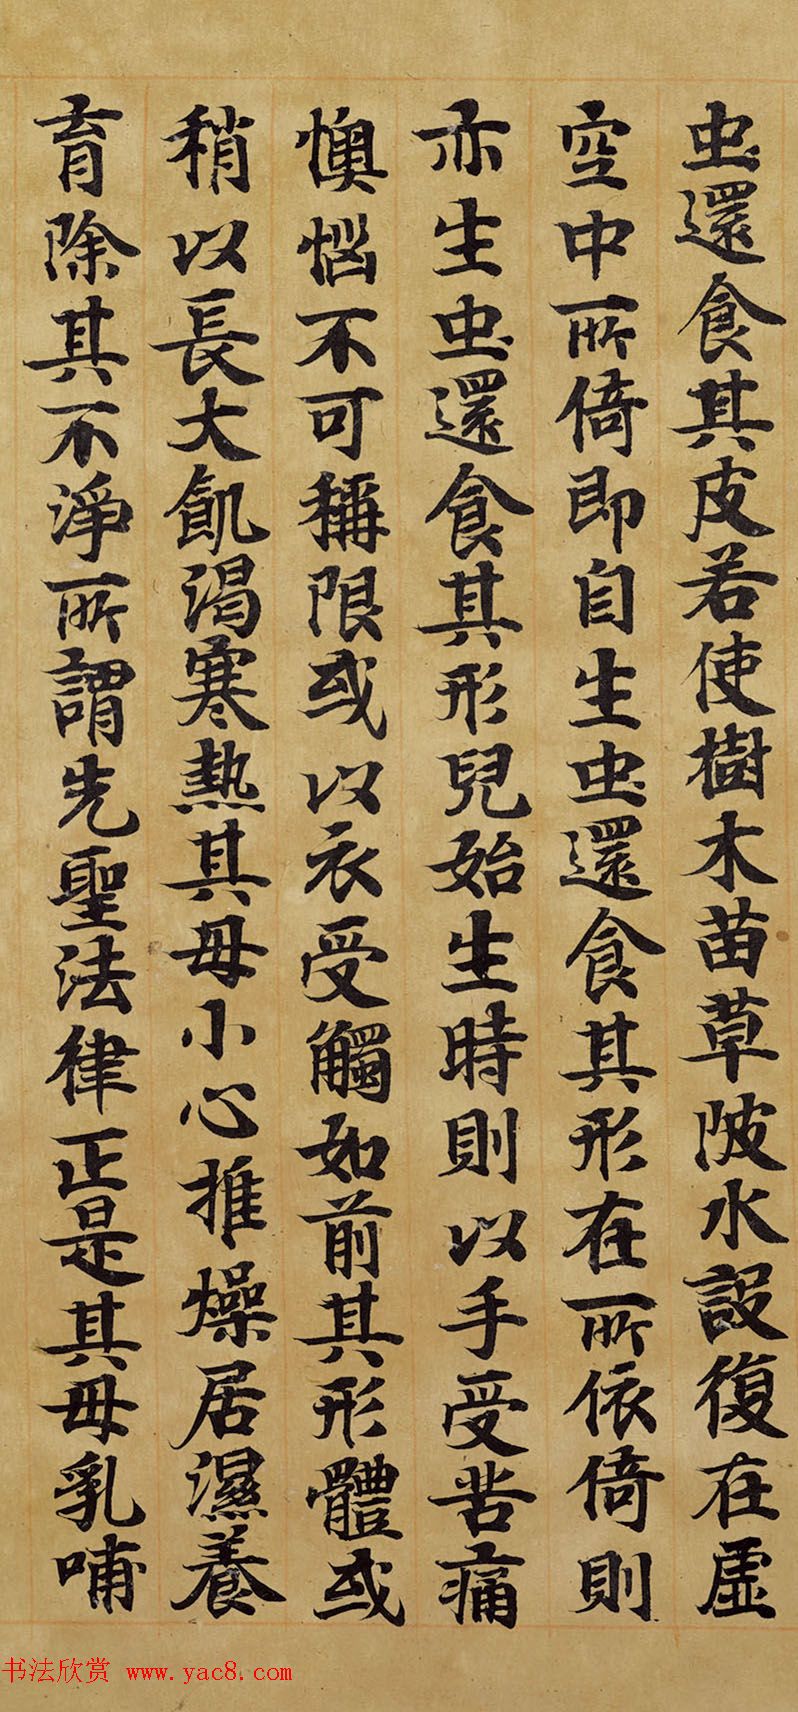 虫還食其皮若使樹木苗草陂水設復在虛
空中所倚即自生虫還食其形在所依倚則
亦生虫還食其形兒始生時則以手受苦痛
懊惱不可稱限或以衣受觸如前其形體或
稍以長大飢渴寒熱其母小心推燥居濕養
育除其不淨所謂先聖法律正是其母乳哺
书法欣赏 www.yac8.com